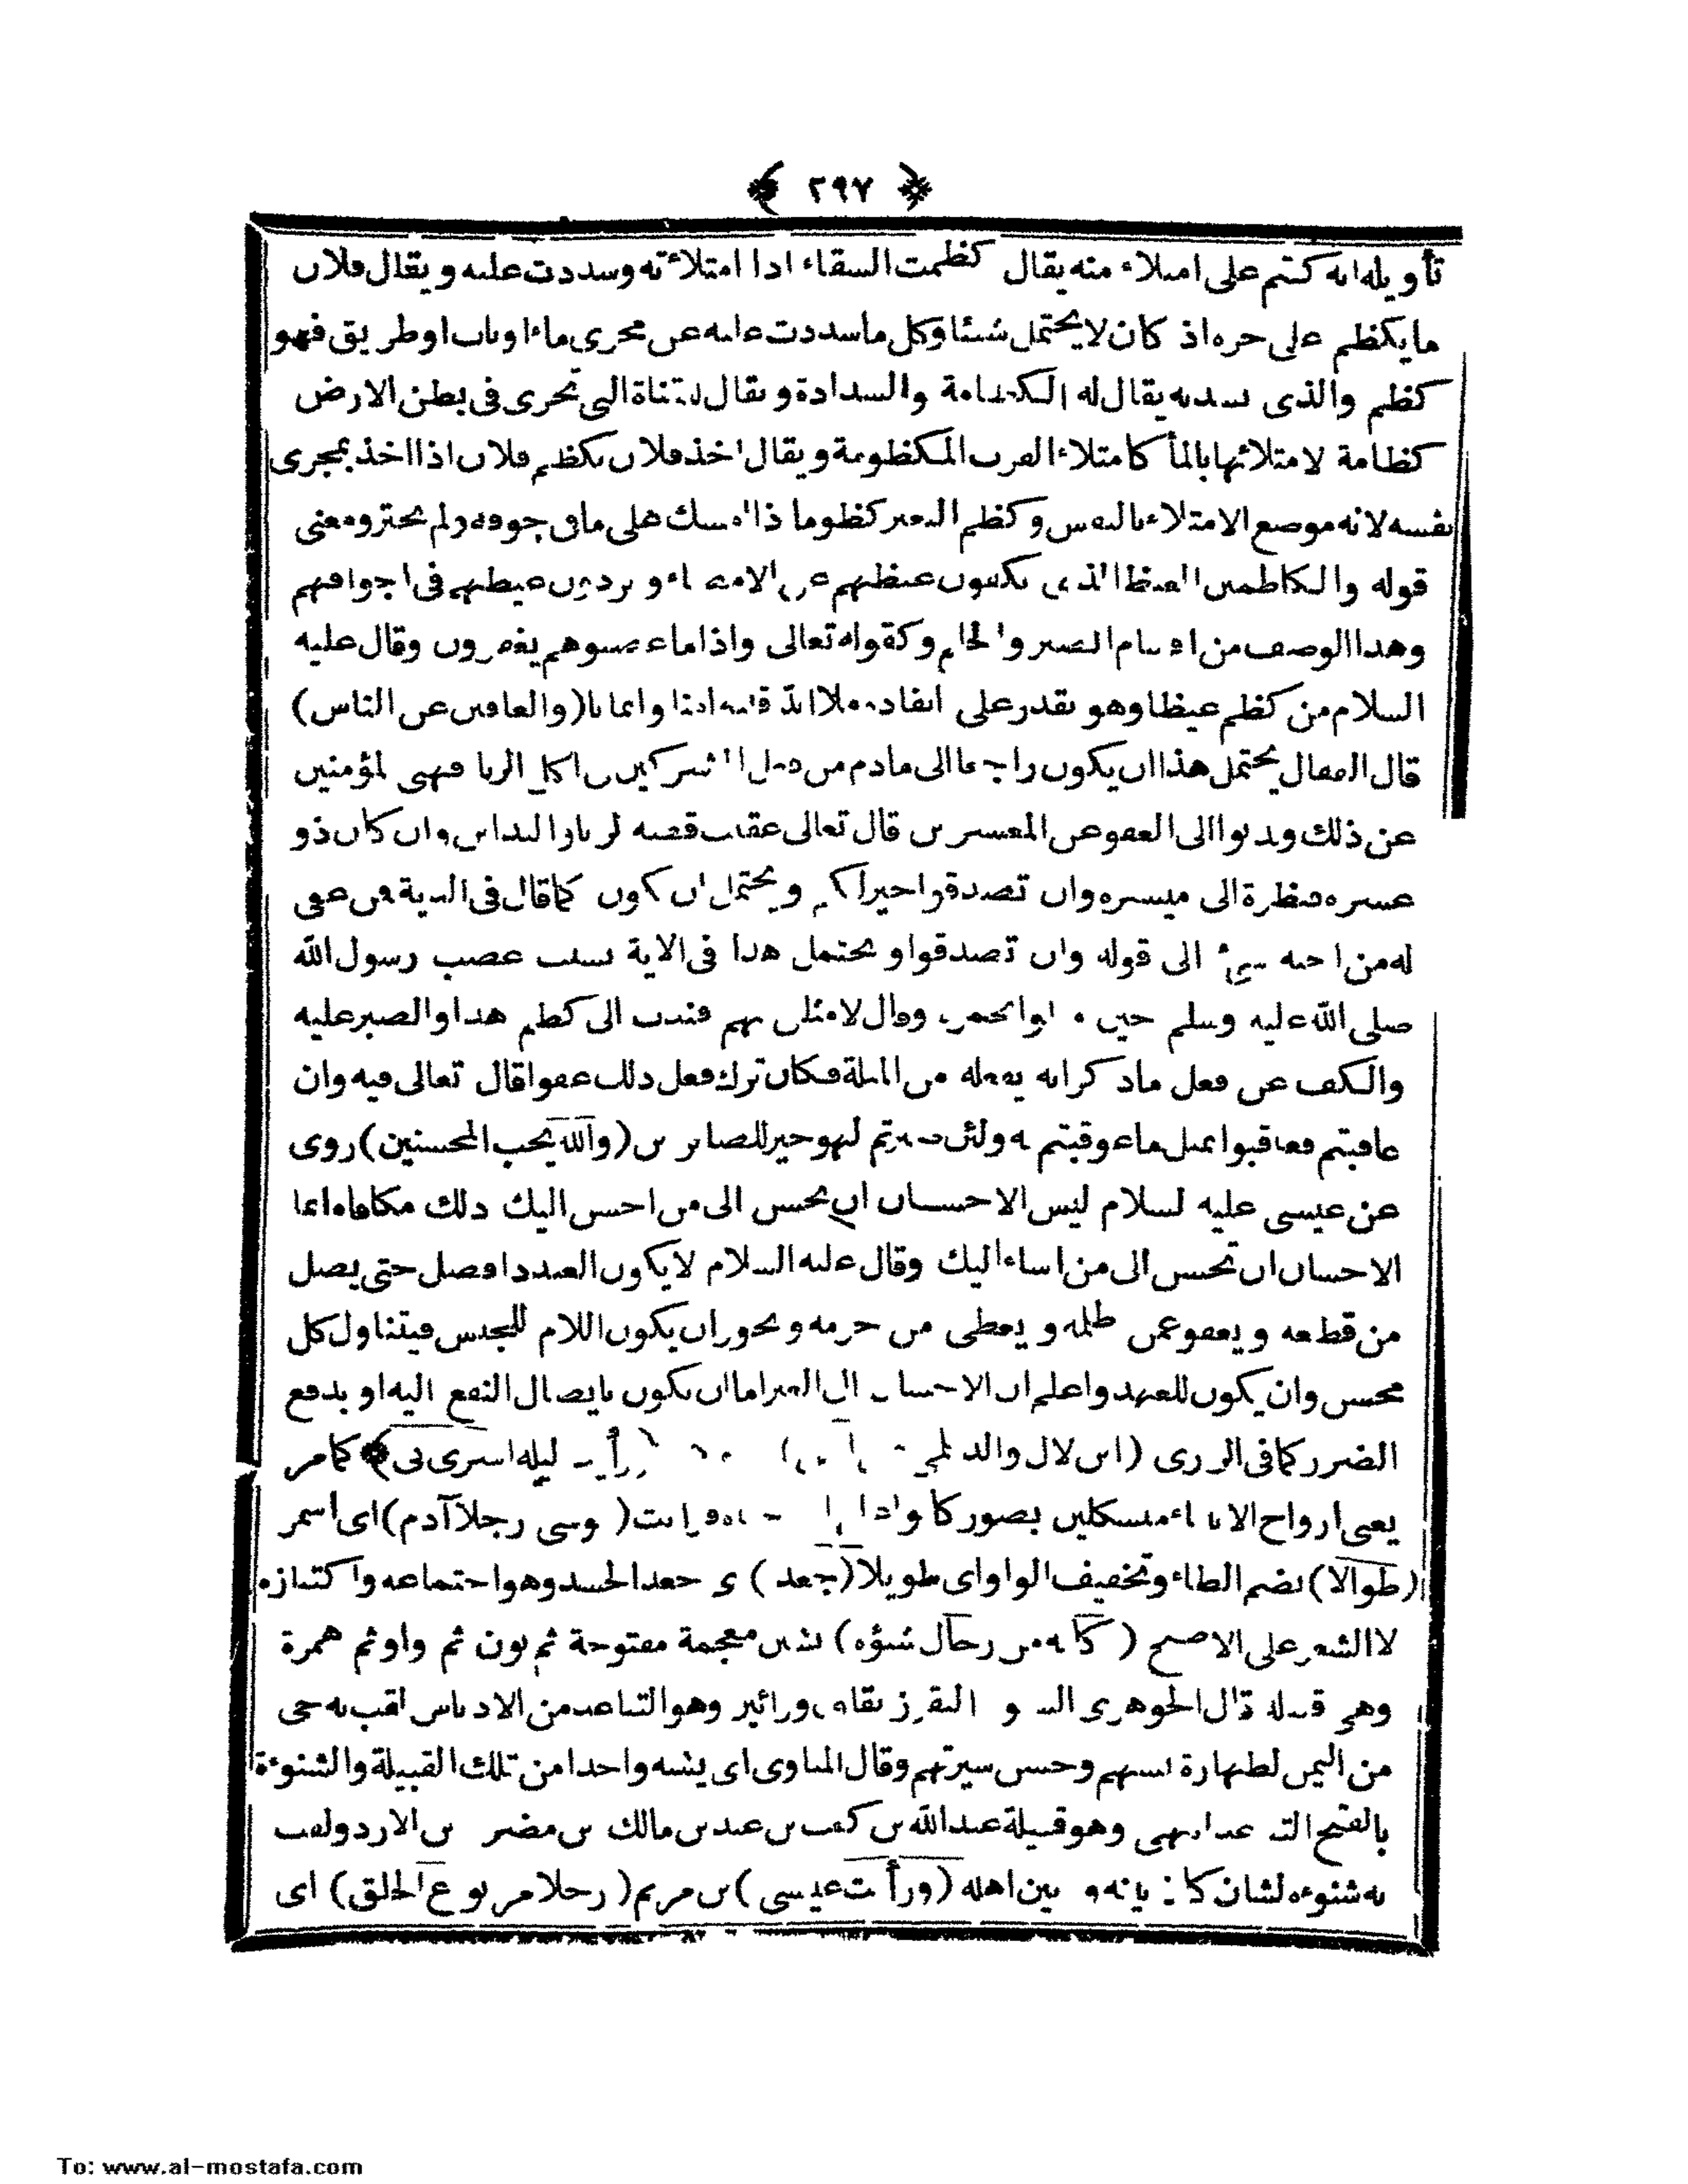 ﴿ ٢٩٧ ﴾
تأويله انه كتم على امتلاء منه يقال كظمت السقاء اذا امتلاءته وسددت عليه ويقال فلان
ما يكظم على جره اذ كان لا يحتمل شيئا وكل ما سددت عليه من مجرى ماء او باب او طريق فهو
كظم والذى يسد به يقال له الكظامة والسدادة ويقال للقناة التى تجرى فى بطن الارض
كظامة لامتلائها بالمأ كامتلاء القرب المكظومة ويقال اخذ فلان بكظم فلان اذا اخذ بمجرى
نفسه لانه موضع الامتلاء بالنفس وكظم البعير كظوما اذا امسك على ما فى جوفه ولم يجتر ومعنى
قوله والكاظمين الغيظ الذين يكفون غيظهم عن الامضاء ويردون غيظهم فى اجوافهم
وهذا الوصف من اقسام الصبر والحلم وكقوله تعالى واذا ما غضبوا هم يغفرون وقال عليه
السلام من كظم غيظا وهو يقدر على انفاده ملا الله قلبه امنا وايمانا (والعافين عن الناس)
قال القفال يحتمل هذا ان يكون راجعا الى ما دم من فعل المشركين من اكل الربا فهى لمؤمنين
عن ذلك وندبوا الى العفو عن المعسرين قال تعالى عقيب قصة لربا والتداين وان كان ذو
عسره فنظرة الى ميسره وان تصدقوا خير لكم ويحتمل ان يكون كما قال فى الدية فمن عفى
له من اخيه شئ الى قوله وان تصدقوا ويحتمل هذا فى الاية بسبب غضب رسول الله
صلى الله عليه وسلم حين مثلوا بحمزة وقال لامثلن بهم فندب الى كظم هذا والصبر عليه
والكف عن فعل ما ذكر انه يفعله من المثلة فكان ترك فعل ذلك عفوا قال تعالى فيه وان
عاقبتم فعاقبوا بمثل ما عوقبتم به ولئن صبرتم لهو خير للصابرين (والله يحب المحسنين) روى
عن عيسى عليه لسلام ليس الاحسان ان تحسن الى من احسن اليك ذلك مكافاه انما
الاحسان ان تحسن الى من اساء اليك وقال عليه السلام لا يكون العبد ذا فضل حتى يصل
من قطعه ويعفو عمن ظلمه ويعطى من حرمه ويجوز ان يكون اللام للجنس فيتناول كل
محسن وان يكون للعهد واعلم ان الاحسان الى الغير اما ان يكون بايصال النفع اليه او بدفع
الضرر كما فى الرازى (ابن لال والديلمى ليله اسرى بى﴾ كما مر
يعنى ارواح الانبياء متشكلين بصور كانوا (موسى رجلا آدم) اى اسمر
(طوالا) بضم الطاء وتخفيف الواو اى طويلا (جعد) اى جعد الجسد وهو اجتماعه واكتنازه
لا الشعر على الاصح (كانه من رجال شنؤه) بشين معجمة مفتوحة ثم نون ثم واو ثم همزة
وهى قبيلة قال الجوهرى التقزز وهو التباعد من الادناس لقب به حى
من اليمن لطهارة نسبهم وحسن سيرتهم وقال المناوى اى يشبه واحدا من تلك القبيلة والشنوءة
بالفتح التباعد وهو قبيلة عبد الله بن كعب بن عبد بن مالك بن مضر بن الازد ولقب
به شنوءه لشان كان بينه وبين اهله (ورأيت عيسى) بن مريم (رجلا مربوع الخلق) اى
To: www.al-mostafa.com